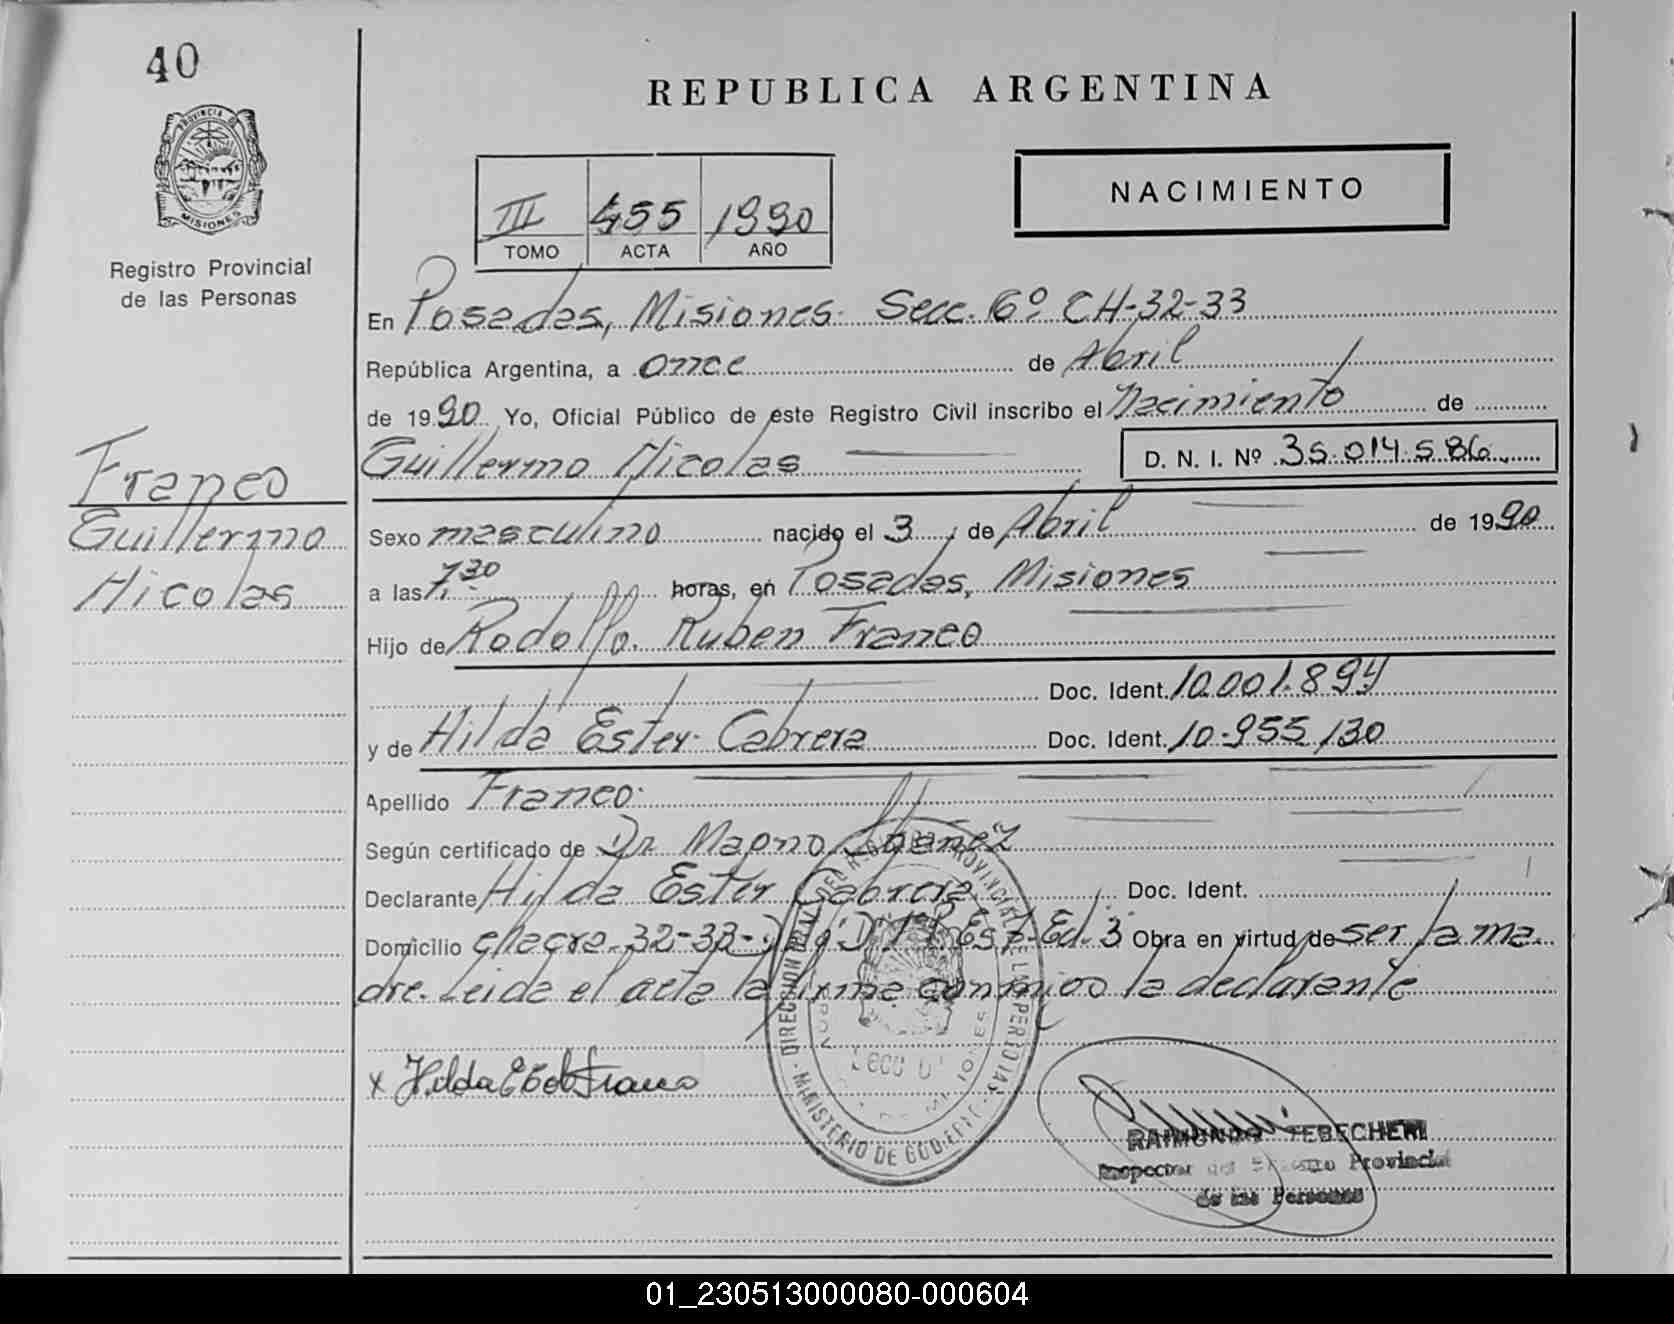 40
REPUBLICA ARGENTINA
PROVINCIA DE
MISIONES
Registro Provincial
de las Personas
III 455 1990
TOMO ACTA AÑO
NACIMIENTO
En Posadas, Misiones. Secc. 6º CH-32-33
República Argentina, a once de Abril
de 1990 Yo, Oficial Público de este Registro Civil inscribo el Nacimiento de
Guillermo Nicolas D. N. I. Nº 35.014.586
Franco
Guillermo
Nicolas
Sexo masculino nacido el 3 de Abril de 1990
a las 7,30 horas, en Posadas, Misiones
Hijo de Rodolfo Ruben Franco
Doc. Ident. 10.001.894
y de Hilda Ester Cabrera Doc. Ident. 10.955.130
Apellido Franco
Según certificado de Dr. Magno Ibañez
Declarante Hilda Ester Cabrera Doc. Ident.
Domicilio chacra 32-33- Esc. Ed. 3 Obra en virtud de ser la ma
dre. Leida el acta la firma conmigo la declarante
x Hilda E C de Franco
DIRECCION DEL REGISTRO PROVINCIAL DE LAS PERSONAS
MINISTERIO DE GOBIERNO
RAIMUNDO TEBECHERI
Inspector del Registro Provincial
de las Personas
01_230513000080-000604